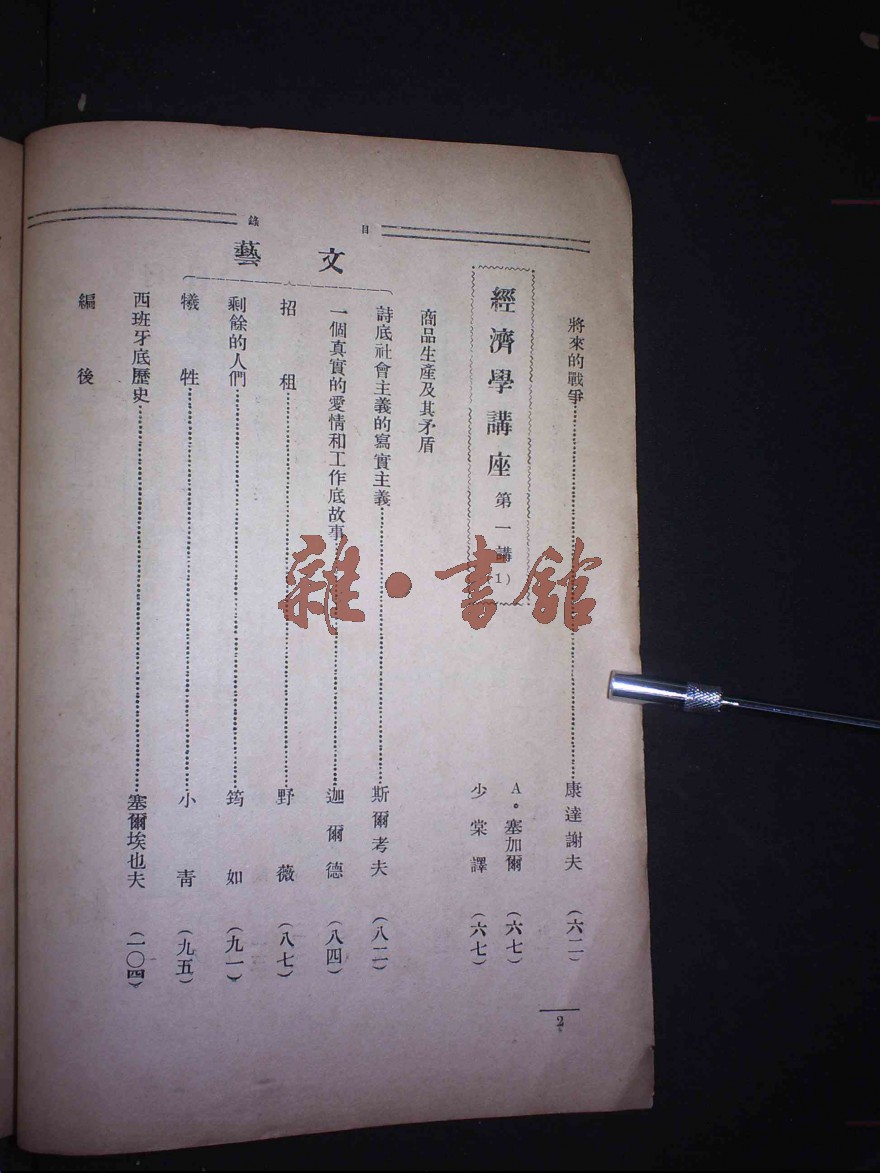 目錄
將來的戰爭……康達謝夫（六二）
經濟學講座 第一講（1）
A。塞加爾（六七）
少棠譯（六七）
商品生產及其矛盾
文藝
詩底社會主義的寫實主義……斯爾考夫（八二）
一個真實的愛情和工作底故事……迦爾德（八四）
招租……野薇（八七）
剩餘的人們……筠如（九一）
犧牲……小青（九五）
西班牙底歷史……塞爾埃也夫（一〇四）
編後
2
雜·書館